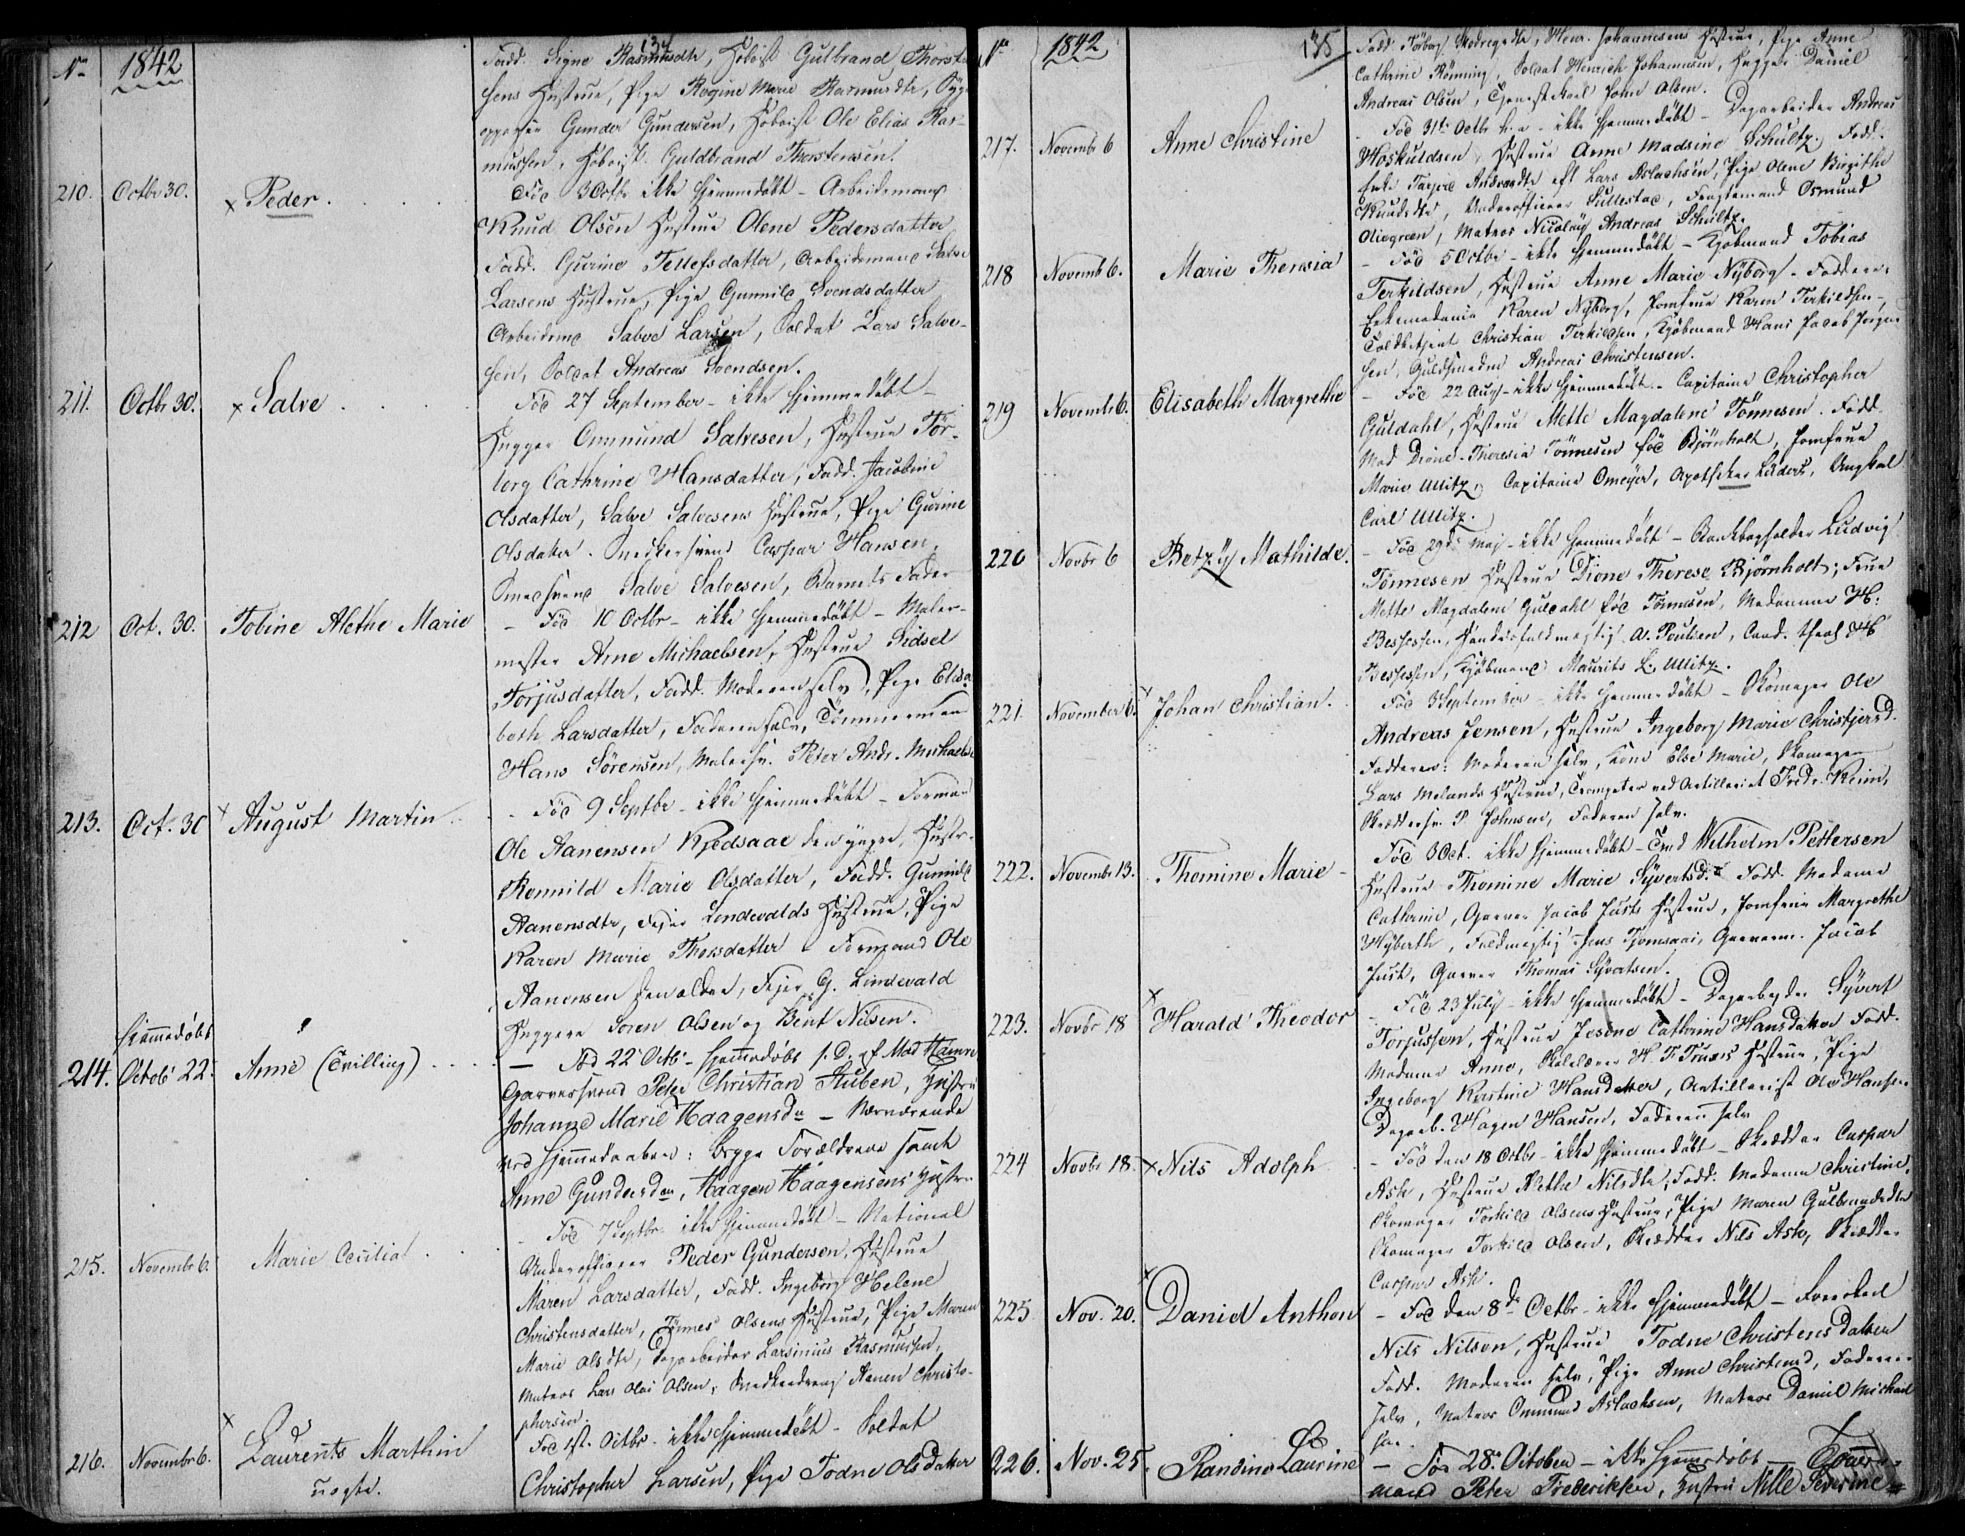 No 1842 134
Fadd. Signe Rasmusdtr, Hoboist Gulbrand Thorste
sens Hustrue, Pige Rogine Marie Rasmusdtr, Byg
Gunder Gundersen, Hoboist Ole Elias Ras-
mussen, Hoboist Guldbrand Thorstensen.
210. Octbr 30. x Peder.
Fød 3 Octbr ikke hjemmedøbt - Arbeidsmand
Knud Olsen Hustrue Olene Pedersdatter
Fadd. Gurine Tellefsdatter, Arbeidsmand Salve
Larsens Hustrue, Pige Gunnild Svendsdatter
Arbeidsmd Salve Larsen, Soldat Lars Salve-
sen, Soldat Andreas Svendsen.
211. Octbr 30. x Salve
Fød 27 September - ikke hjemmedøbt -
Hugger Ommund Salvesen, Hustrue Tor-
berg Cathrine Hansdatter, Fadd. Jacobine
Olsdatter, Salve Salvesens Hustrue, Pige Gurine
Olsdatter. Snedkersvend Caspar Hansen,
Smedsvend Salve Salvesen, Barnets Fader
212 Oct. 30. Tobine Alethe Marie
- Fød 10 Octbr - ikke hjemmedøbt - Maler-
mester Arne Michaelsen, Hustrue Sidsel
Torjusdatter, Fadd. Moderen selv, Pige Elisa
beth Larsdatter, Faderen selv, Tømmermand
Hans Sörensen, Malersv. Peter Andr. Michaelse
213. Oct. 30 x August Martin
- Fød 9 Septbr - ikke hjemmedøbt - Formand
Ole Aanensen Kjedsaae den yngre, Hustr.
Ronnild Marie Olsdatter, Fadd. Gunnild
Aanensdtr, Fejer Lindevalds Hustrue, Pige
Karen Marie Thorsdatter - Formand Ole
Aanensen den ældre, Fejer G. Lindevald
Huggere Soren Olsen og Bent Nilsen.
hjemmedøbt
214. Octob: 22. Anne (Tvilling)
- Fød 22 Octb - hjemmedøbt s. D. af Mad Hamre
Garversvend Peter Christian Stuben, Hustru
Johanne Marie Haagensdr - Nærværende
ved hjemmedaaben: begge Forældrene samt
Anne Gundersdr, Haagen Haagensens Hustru
215. Novembr 6. Marie Cecilia
- Fød 7 Septbr ikke hjemmedøbt - National
Underofficeer Peder Gundersen, Hustrue
Maren Larsdatter, Fadd. Ingeborg Helene
Christensdatter, Tönnes Olsens Hustrue, Pige Maren
Marie Olsdtr, Dagarbeider Larsinius Rasmussen,
Matros Lars Olai Olsen, Snedkerdreng Aanen Christo-
phersen.
216. Novembr 6. x Laurents Marthin
uægte.
Fød 1st. Octbr - ikke hjemmedøbt - Soldat
Christopher Larsen, Pige Todne Olsdatter
No 1842 135
Fadd. Torborg Andreasdtr, Henr. Johannesens Hustrue, Pige Anne
Cathrine Rönning, Soldat Henrich Johannesen, Hugger Daniel
Andreas Olsen, Tjenestekarl John Olsen.
217. Novembr 6 Anne Christine
- Fød 31te Octbr - ikke hjemmedøbt - Dagarbeider Andreas
Hoskuldsen, Hustrue Anne Madsine Schultz. Fadd.
Enke Taarje Andreasdtr eft Lars Aslachsen, Pige Olene Birgithe
Knudsdtr, Underofficeer Sullestad, Fragtemand Osmund
Oliegreen, Matros Nicolay Andreas Schultz.
218 Novemb 6. Marie Theresia
- Fød 5 Octbr - ikke hjemmedøbt - Kjøbmand Tobias
Terkildsen, Hustrue Anne Marie Nyborg - Faddere:
Enkemadame Karen Nyborg, Jomfrue Karen Terkildsen -
Toldbetjent Christian Terkildsen, Kjøbmand Hans Jacob Jørgen
sen, Guldsmed Andreas Christensen.
219 Novembr 6. Elisabeth Margrethe
- Fød 22 Aug - ikke hjemmedøbt - Capitaine Christopher
Guldahl, Hustrue Mette Magdalene Tönnesen. Fadd.
Mad Dione Theresia Tönnesen fød Bjørnholt, Jomfrue
Marie Ullitz, Capitaine Omeyer, Apotheker Lüders, Ungkarl
Carl Ullitz.
220 Novbr 6 Betzÿ Mathilde.
- Fød 29de Maj - ikke hjemmedøbt - Bankbogholder Ludvig
Tönnesen Hustrue Dione Therese Bjørnholt; Frue
Mette Magdalene Guldahl fød Tönnesen, Madamme H.
Bessesen, Handelsfuldmegtig A. Poulsen, Cand. theol H
Bessesen, Kjøbmand Maurits L. Ullitz.
221. November 6. x Johan Christian.
Fød 3 September - ikke hjemmedøbt - Skomager Ole
Andreas Jensen, Hustrue Ingeborg Marie Christjersd.
Faddere: Moderen selv, Kone Else Marie, Skomager
Lars Melands Hustrue, Trompeter ved Artilleriet Fredr. Keim,
Skræddersv. P Johnsen, Faderen selv.
222. Novembr 13. Thomine Marie
Fød 3 Oct. ikke hjemmedøbt - Smd Wilhelm Pettersen
Hustrue Thomine Marie Syvertsd. Fadd. Madame
Cathrine, Garver Jacob Justs Hustrue, Jomfrue Margrethe
Wyberth, Fuldmegtig Jens Tjomsaas, Garverm. Jacob
Just, Garver Thomas Syvertsen.
223. Novbr 18 x Harald Theodor
- Fød 23 July - ikke hjemmedøbt - Dagarbeyder Syvert
Torjussen, Hustrue Jesine Cathrine Hansdatter Fadd.
Madame Anne, Skolelærer H. F. Trues Hustrue, Pige
Ingeborg Kirstine Hansdatter, Artillerist Ole Hansen
Dagarb. Hagen Hansen, Faderen selv
224 Novbr 18. x Nils Adolph
- Fød den 18 Octbr - ikke hjemmedøbt - Skrædder Caspar
Ask, Hustrue Methe Nilsdtr, Fadd. Madame Christine,
Skomager Torkild Olsens Hustrue, Pige Maren Gulbrandsdtr
Skomager Torkild Olsen, Skrædder Nils Ask, Skrædder
Caspar Ask.
225 Nov. 20. x Daniel Anthon
- Fød den 8de Octbr - ikke hjemmedøbt -
Nils Nilsen, Hustrue Todne Christensdatter
Fadd. Moderen selv, Pige Anne Christensd, Faderen
selv, Matros Ommund Aslachsen, Matros Daniel Michael
sen.
226. Nov. 25. Randine Laurine
- Fød 28de October - ikke hjemmedøbt - Tömmer-
mand Peter Frederiksen, Hustru Nille Severine